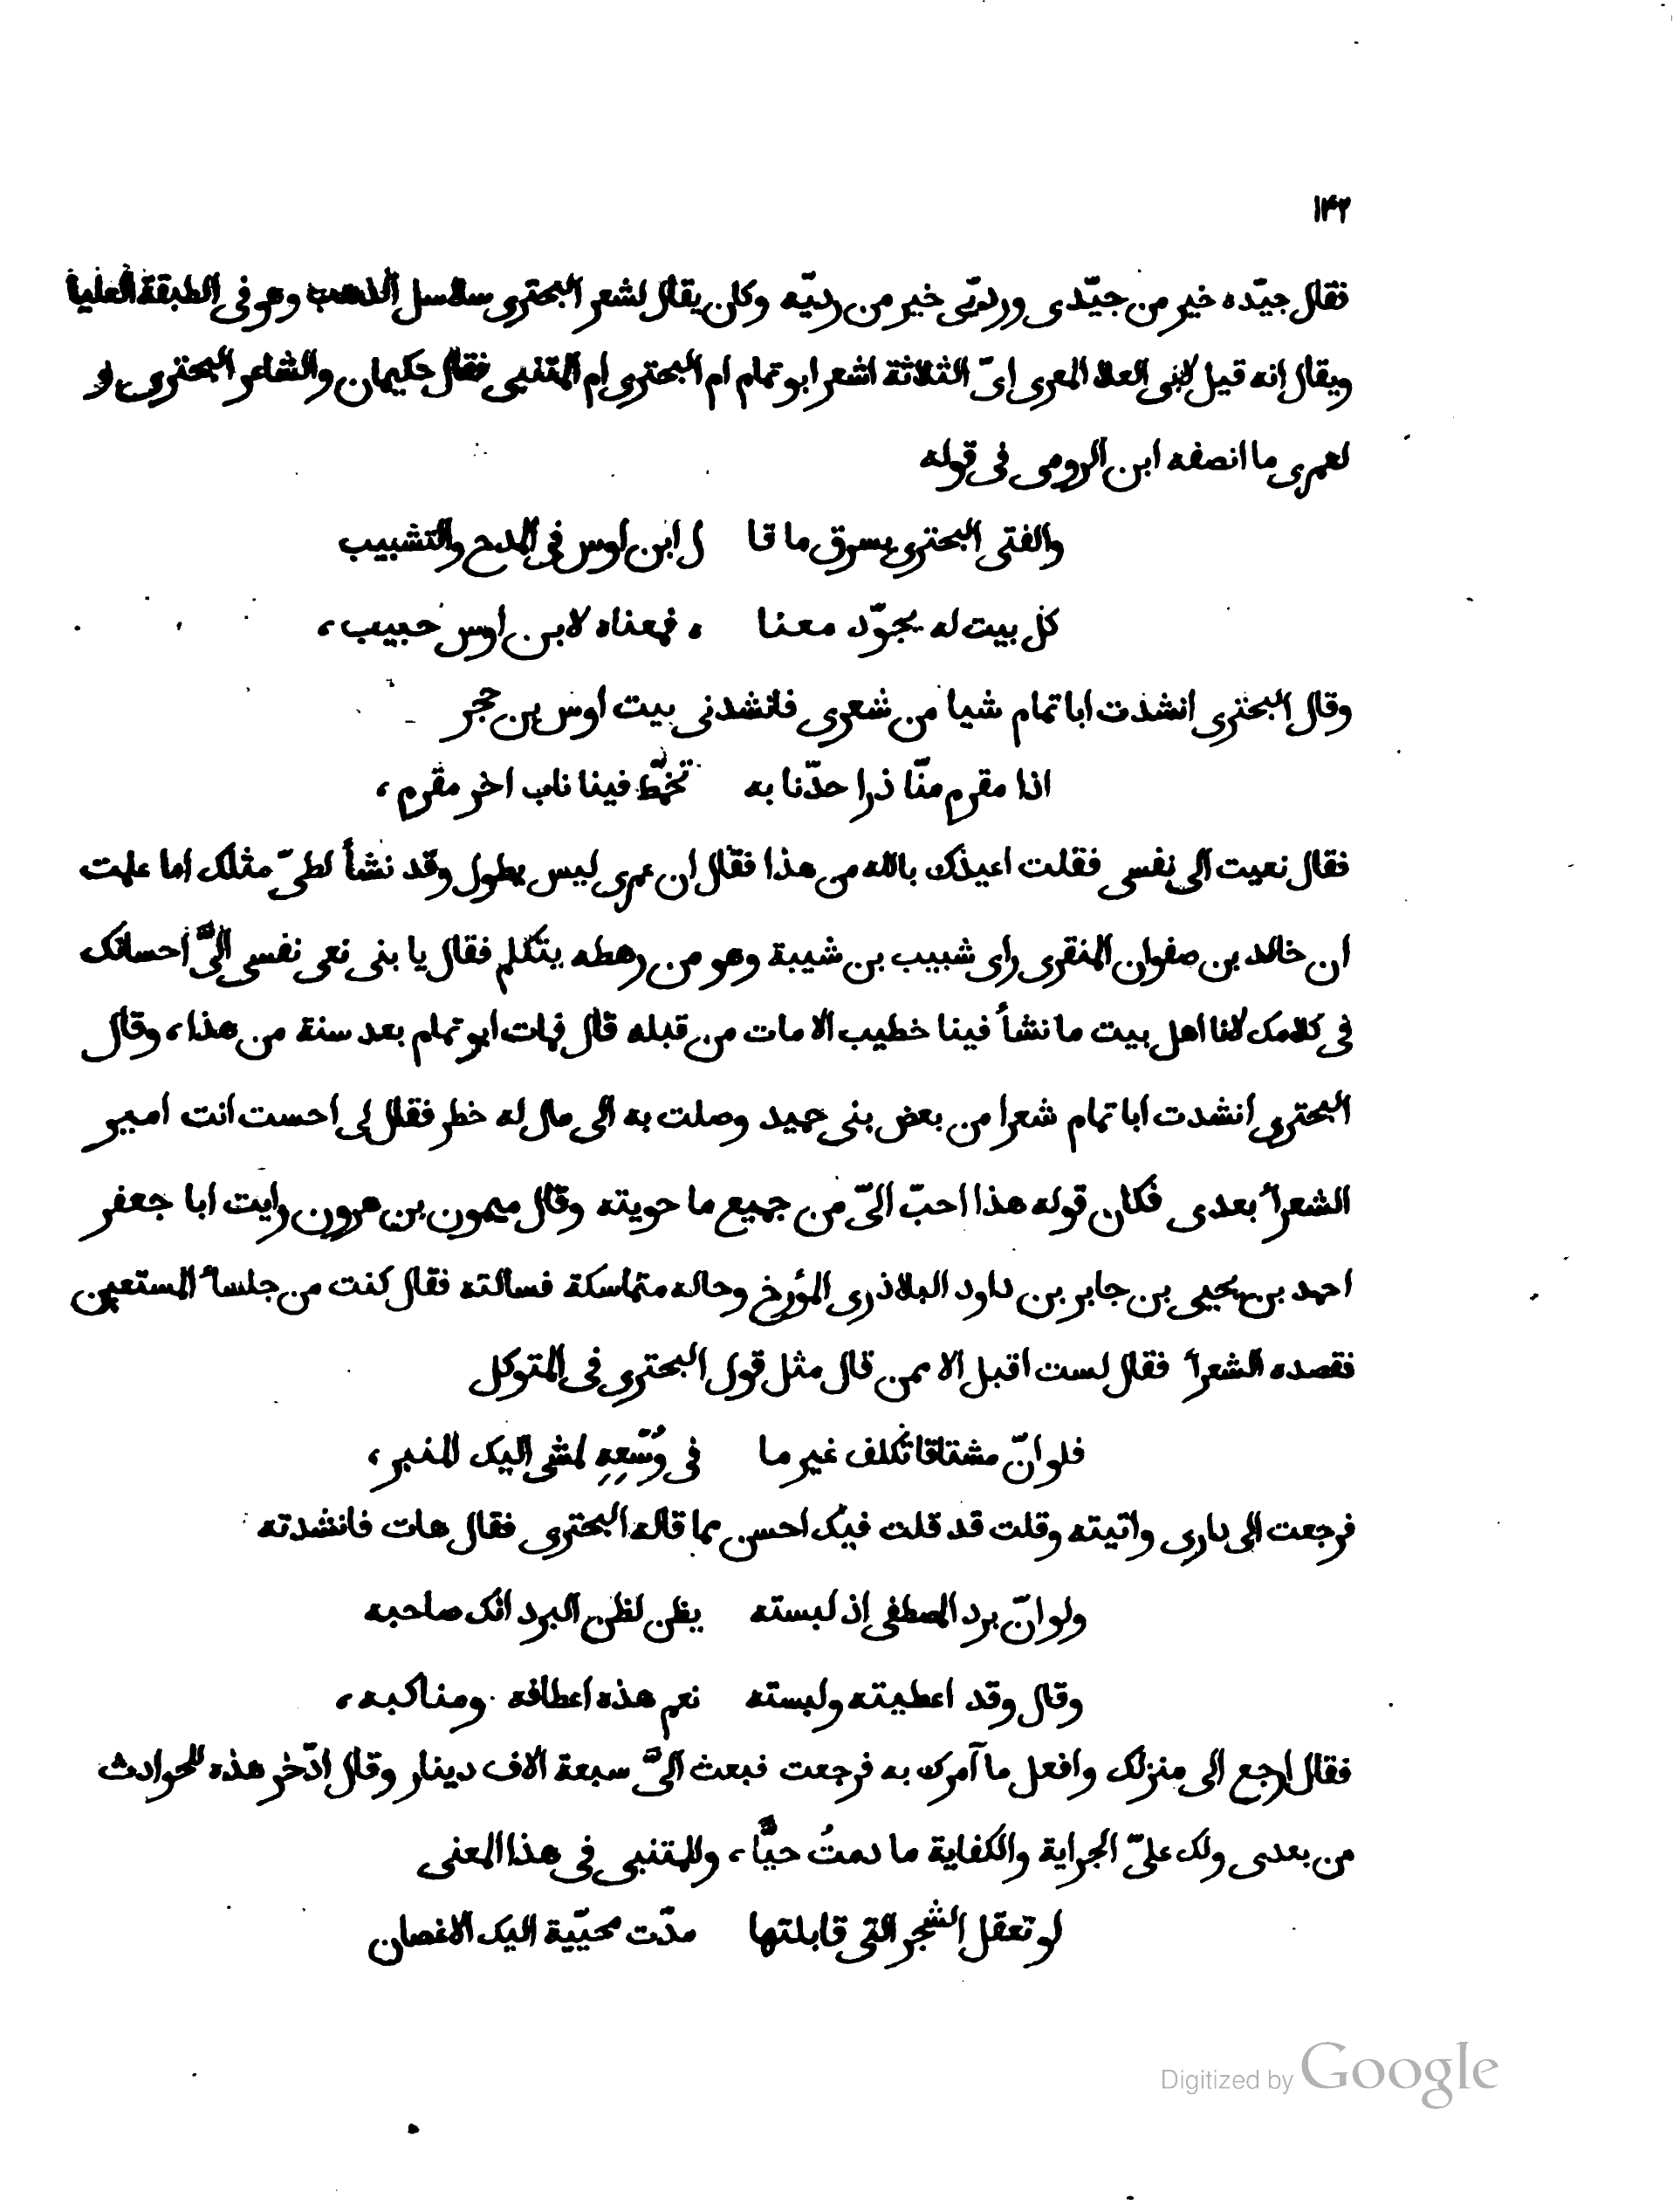 ١٤٢
فقال جيّده خير من جيّدى وردئى خير من رديّه وكان يقال لشعر البحترى سلاسل الذهب وهو فى الطبقة العليا
ويقال انه قيل لابى العلا المعرى اىّ الثلاثة اشعر ابو تمام ام البحترى ام المتنبى فقال حكيمان والشاعر البحترى و
لعمرى ما انصفه ابن الرومى فى قوله
والفتى البحترى يسرق ما قا ل ابن اوس فى المدح والتشبيب
كل بيت له يجوّد معنا ه فمعناه لابن اوس حبيب،
وقال البحترى انشدت ابا تمام شيا من شعرى فانشدنى بيت اوس بن حجر
اذا مقرم منّا ذرا حدّنا به تخمّط فينا ناب اخر مقرم،
فقال نعيت الى نفسى فقلت اعيذك بالله من هذا فقال ان عمرى ليس يطول وقد نشأ لطىّ مثلك اما علمت
ان خالد بن صفوان المنقرى راى شبيب بن شيبة وهو من رهطه يتكلم فقال يا بنى نعى نفسى الىَّ احسانك
فى كلامك لانا اهل بيت ما نشأ فينا خطيب الا مات من قبله قال فمات ابو تمام بعد سنة من هذا، وقال
البحترى انشدت ابا تمام شعرا من بعض بنى حميد وصلت به الى مال له خطر فقال لى احسنت انت امير
الشعرأ بعدى فكان قوله هذا احبّ الىّ من جميع ما حويته وقال ميمون بن هرون رايت ابا جعفر
احمد بن يحيى بن جابر بن داود البلاذرى المؤرخ وحاله متماسكة فسالته فقال كنت من جلسأ المستعين
فقصده الشعرأ فقال لست اقبل الا ممن قال مثل قول البحترى فى المتوكل
فلو انّ مشتاقا تكلف غير ما فى وُسْعِهِ لمشى اليك المنبر،
فرجعت الى دارى واتيته وقلت قد قلت فيك احسن مما قاله البحترى فقال هات فانشدته
ولو انّ برد المصطفى اذ لبسته يظن لظن البرد انك صاحبه
وقال وقد اعطيته ولبسته نعم هذه اعطافه ومناكبه،
فقال ارجع الى منزلك وافعل ما آمرك به فرجعت فبعث الىَّ سبعة الاف دينار وقال ادّخر هذه للحوادث
من بعدى ولك علىّ الجراية والكفاية ما دمتُ حيًّا، وللمتنبى فى هذا المعنى
لو تعقل الشجر التى قابلتها مدّت محيّية اليك الاغصان
Digitized by Google